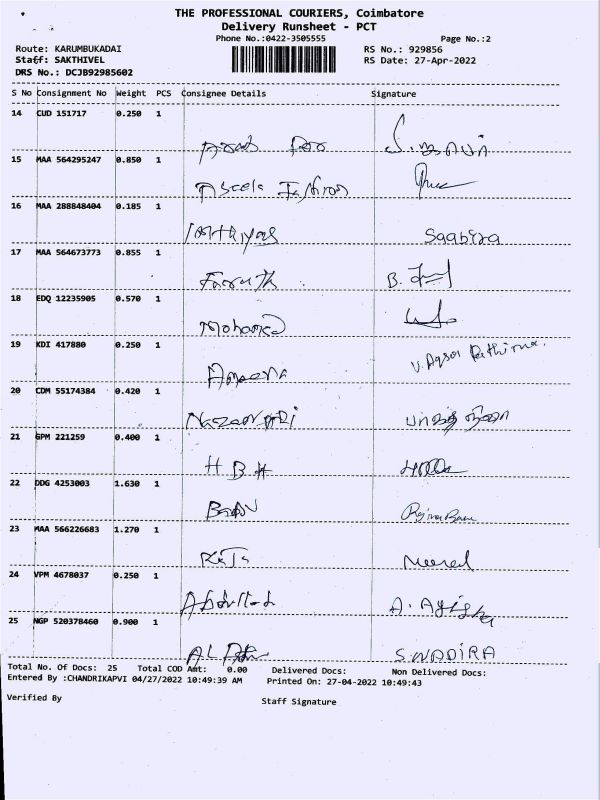 THE PROFESSIONAL COURIERS, Coimbatore
Delivery Runsheet - PCT
Phone No.:0422-3505555 Page No.:2
Route: KARUMBUKADAI RS No.: 929856
Staff: SAKTHIVEL RS Date: 27-Apr-2022
DRS No.: DCJB92985602
S No Consignment No Weight PCS Consignee Details Signature
14 CUD 151717 0.250 1
15 MAA 564295247 0.850 1
16 MAA 288848404 0.185 1
Imthiyas Saabira
17 MAA 564673773 0.855 1
Farruth B.
18 EDQ 12235905 0.570 1
Mohamed
19 KDI 417880 0.250 1
Ameena
20 CDM 55174384 0.420 1
21 GPM 221259 0.400 1
H B H
22 DDG 4253003 1.630 1
23 MAA 566226683 1.270 1
24 VPM 4678037 0.250 1
Abdullah A. Ayisha
25 NGP 520378460 0.900 1
AL S.NADIRA
Total No. Of Docs: 25 Total COD Amt: 0.00 Delivered Docs: Non Delivered Docs:
Entered By :CHANDRIKAPVI 04/27/2022 10:49:39 AM Printed On: 27-04-2022 10:49:43
Verified By Staff Signature